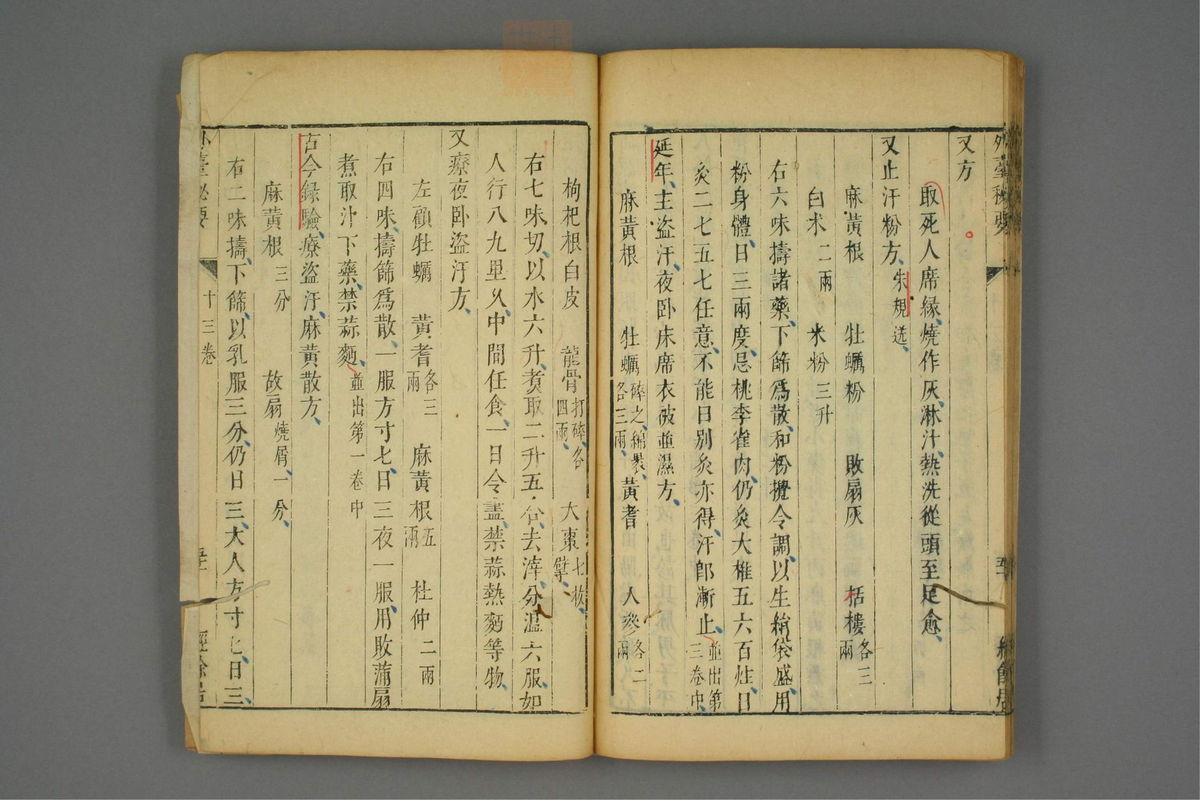 又方
取死人席緣燒作灰淋汁熱洗從頭至足愈
又止汗粉方朱規送
麻黃根 牡蠣粉 敗扇灰 括樓各三兩
白朮二兩 米粉三升
右六味擣諸藥下篩爲散和粉攪令調以生絹袋盛用
粉身體日三兩度忌桃李雀肉仍灸大椎五六百炷日
灸二七五七任意不能日別灸亦得汗卽漸止並出第三卷中
延年主盜汗夜卧床席衣被並濕方
麻黃根 牡蠣碎之綿裹各三兩 黃耆 人參各二兩
枸杞根白皮 龍骨打碎各四兩 大棗七枚擘
右七味切以水六升煑取二升五合去滓分溫六服如
人行八九里久中間任食一日令盡禁蒜熱麪等物
又療夜卧盜汗方
左顧牡蠣 黃耆各三兩 麻黃根五兩 杜仲二兩
右四味擣篩爲散一服方寸匕日三夜一服用敗蒲扇
煮取汁下藥禁蒜麪並出第一卷中
古今録驗療盜汗麻黃散方
麻黃根三分 故扇燒屑一分
右二味擣下篩以乳服三分仍日三大人方寸匕日三
外臺秘要 十三卷